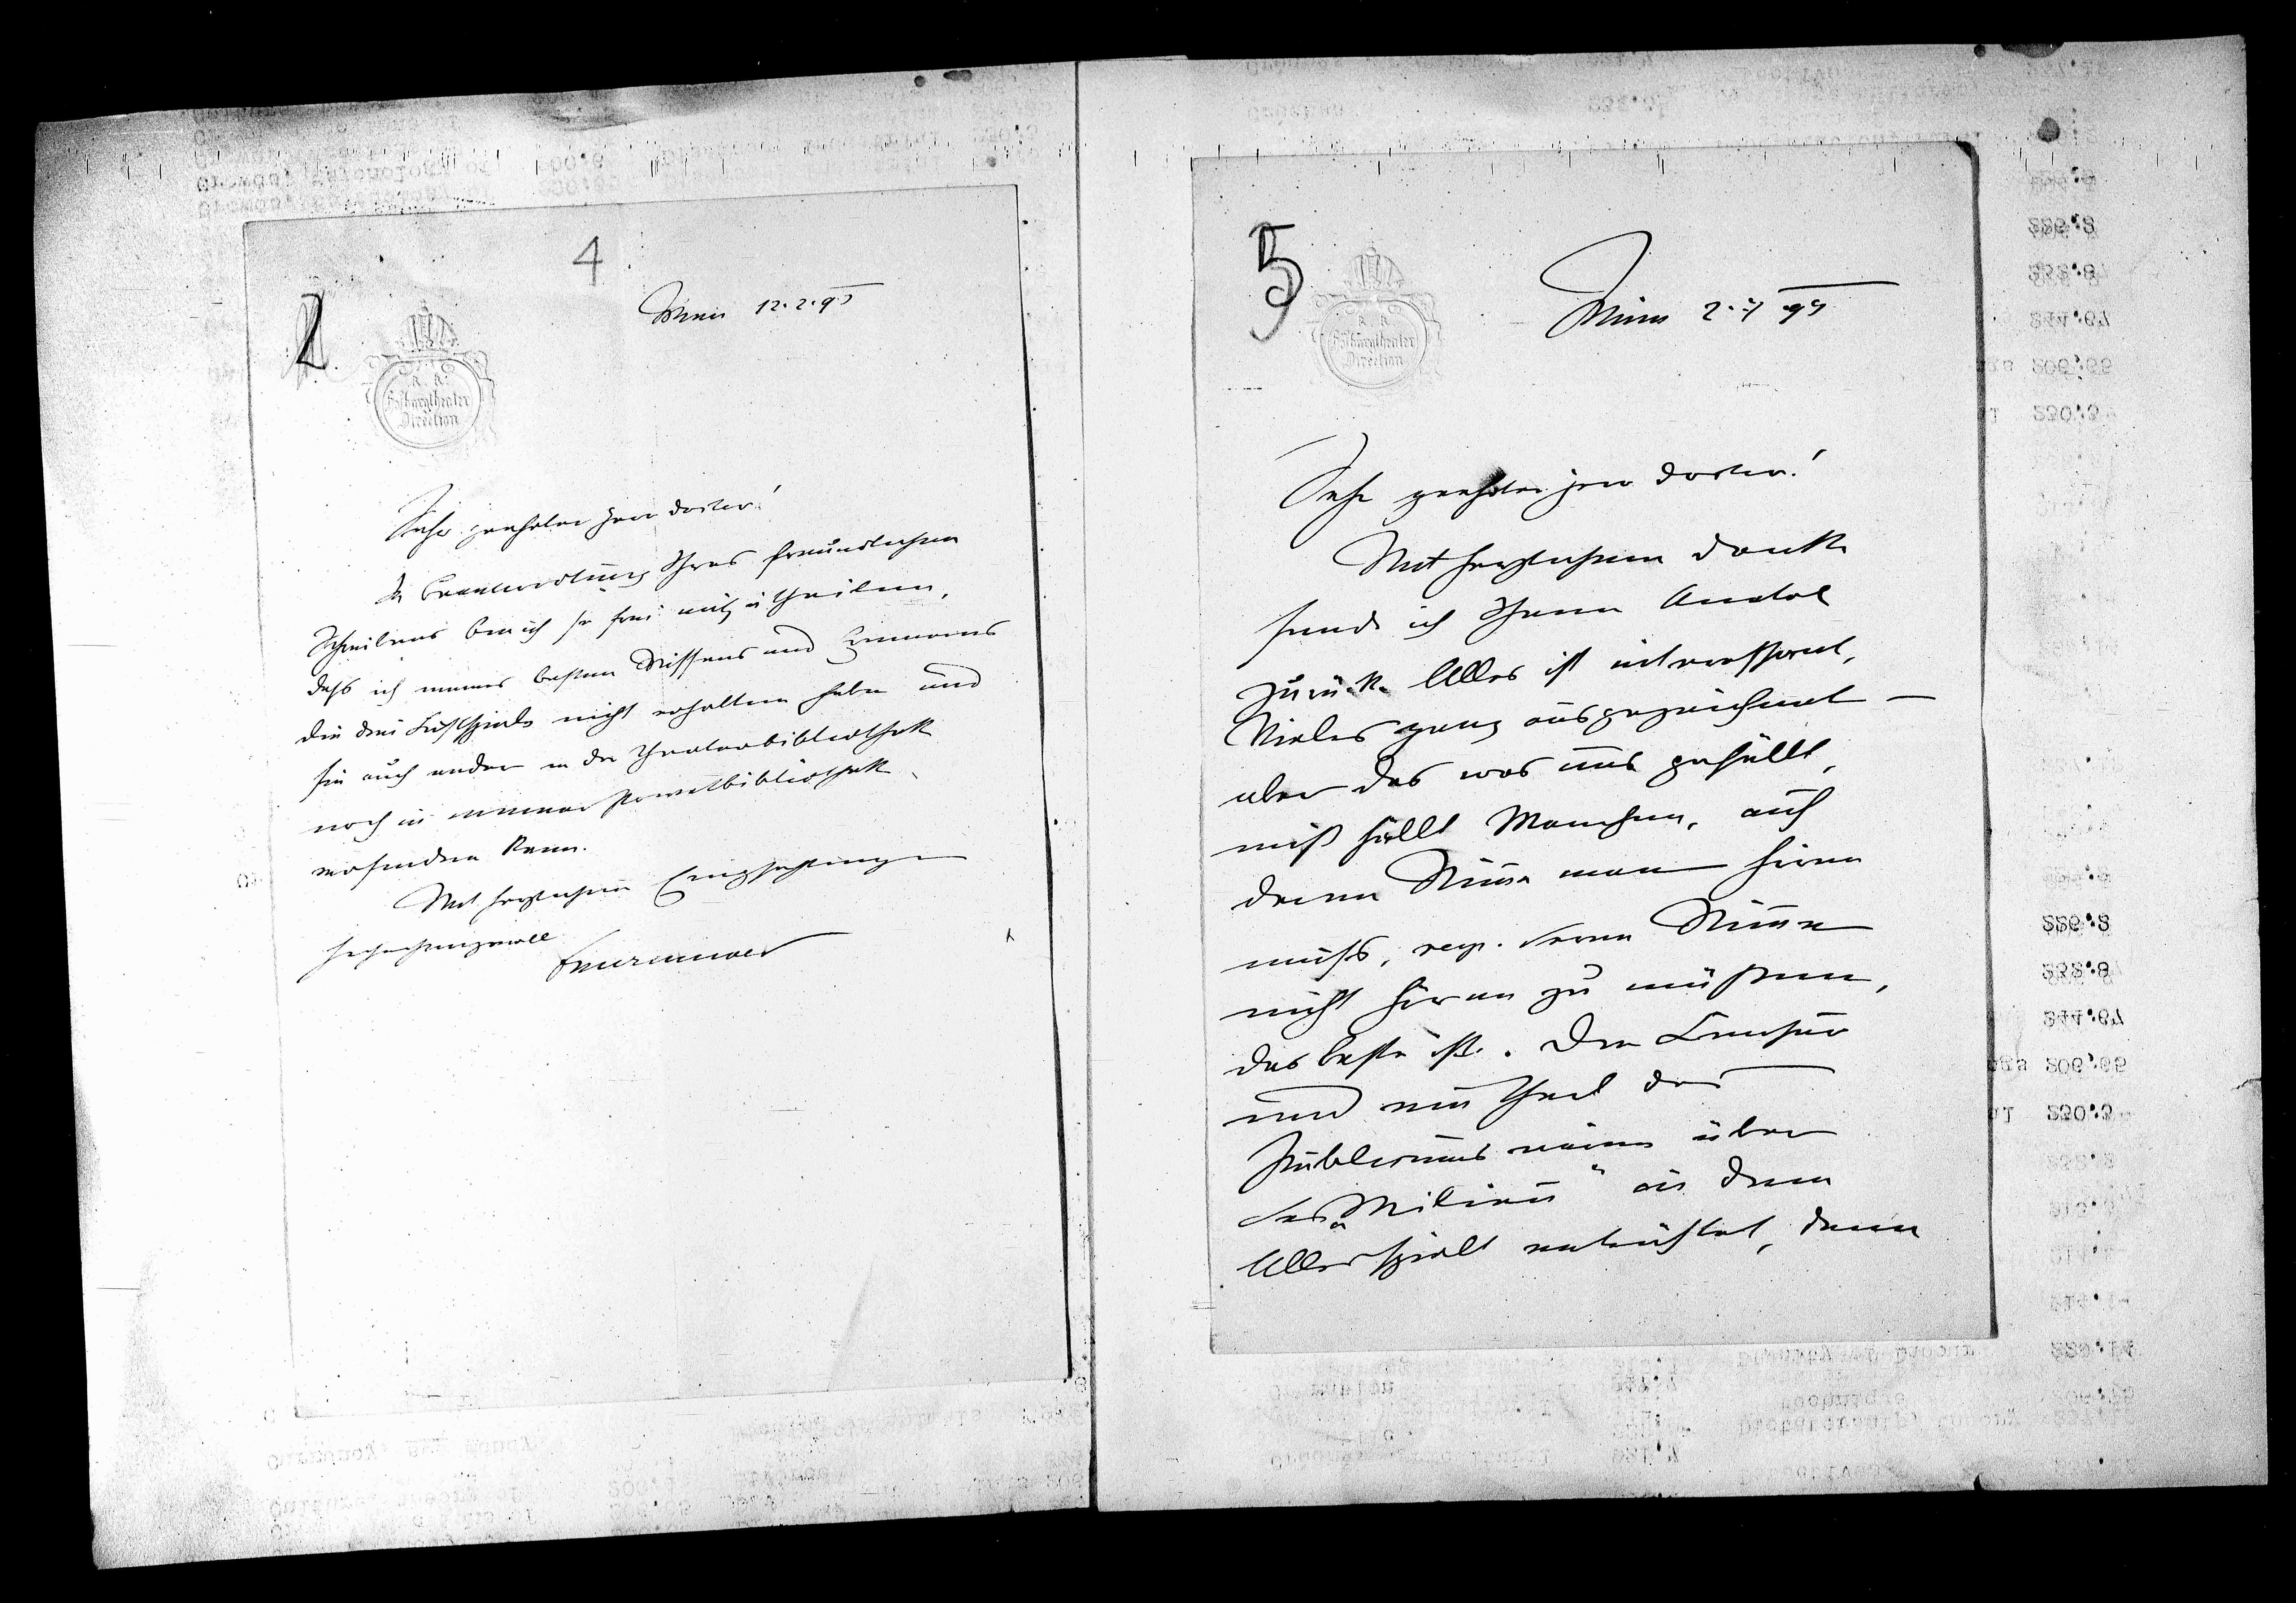 4
2
K. K.
Hofburgtheater
Direction
Wien 12.2.95
Sehr geehrter Herr Doctor!
In Beantwortung Ihres freundlichen
Schreibens bin ich so frei mitzutheilen,
daß ich meines besten Wissens und Erinnerns
die drei Lustspiele nicht erhalten habe und
sie auch weder in der Theaterbibliothek
noch in meiner Privatbibliothek
vorfinden kann.
Mit herzlichen Empfehlungen
hochachtungsvoll
5
K. K.
Hofburgtheater
Direction
Wien 95
Sehr geehrter Herr Doctor!
Mit herzlichem Danke
sende ich Ihnen Anatol
zurück. Alles ist interessant,
Vieles ganz ausgezeichnet –
aber das was uns gefällt,
mißfällt Manchen, auf
deren Stimme man hören
muß, resp. deren Stimme
nicht hören zu müssen,
das beste ist. Die Censur
und ein Theil des
Publicums wären über
das „Milieu“ in dem
Alles spielt entrüstet, denn